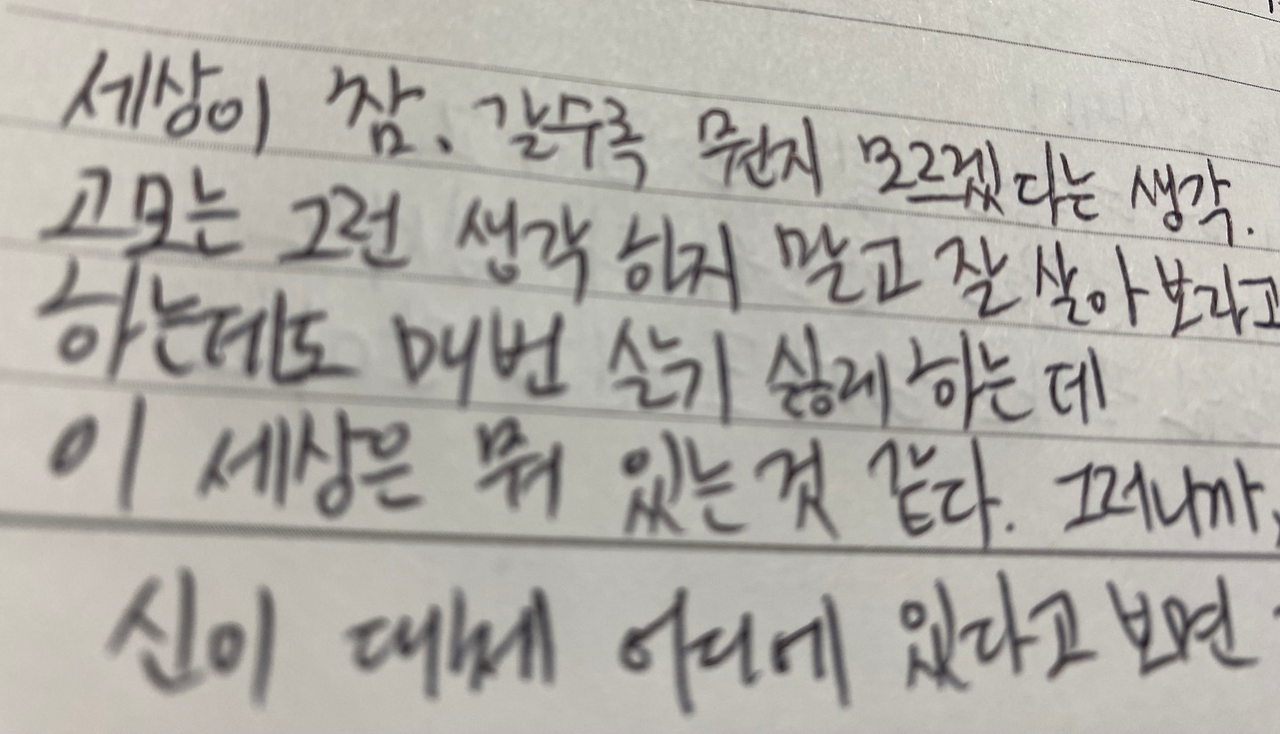 세상이 참. 갈수록 뭔지 모르겠다는 생각.
고모는 그런 생각 하지 말고 잘 살아 보라고
하는데도 매번 살기 싫게 하는 데
이 세상은 뭐 있는 것 같다. 그러니까,
신이 대체 어디에 있다고 보면